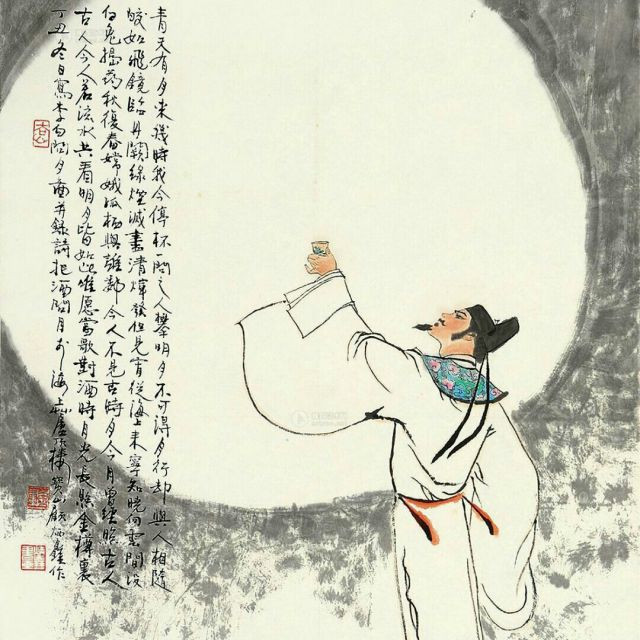 青天有月來幾時我今停杯一問之人攀明月不可得月行却與人相隨
皎如飛鏡臨丹闕綠煙滅盡清輝發但見宵從海上來寧知曉向雲間没
白兔搗藥秋復春嫦娥孤栖與誰鄰今人不見古時月今月曾經照古人
古人今人若流水共看明月皆如此唯愿當歌對酒時月光長照金樽裏
丁丑冬日寫李白問月圖并錄詩把酒問月於海上樓寶山顧炳鑫作